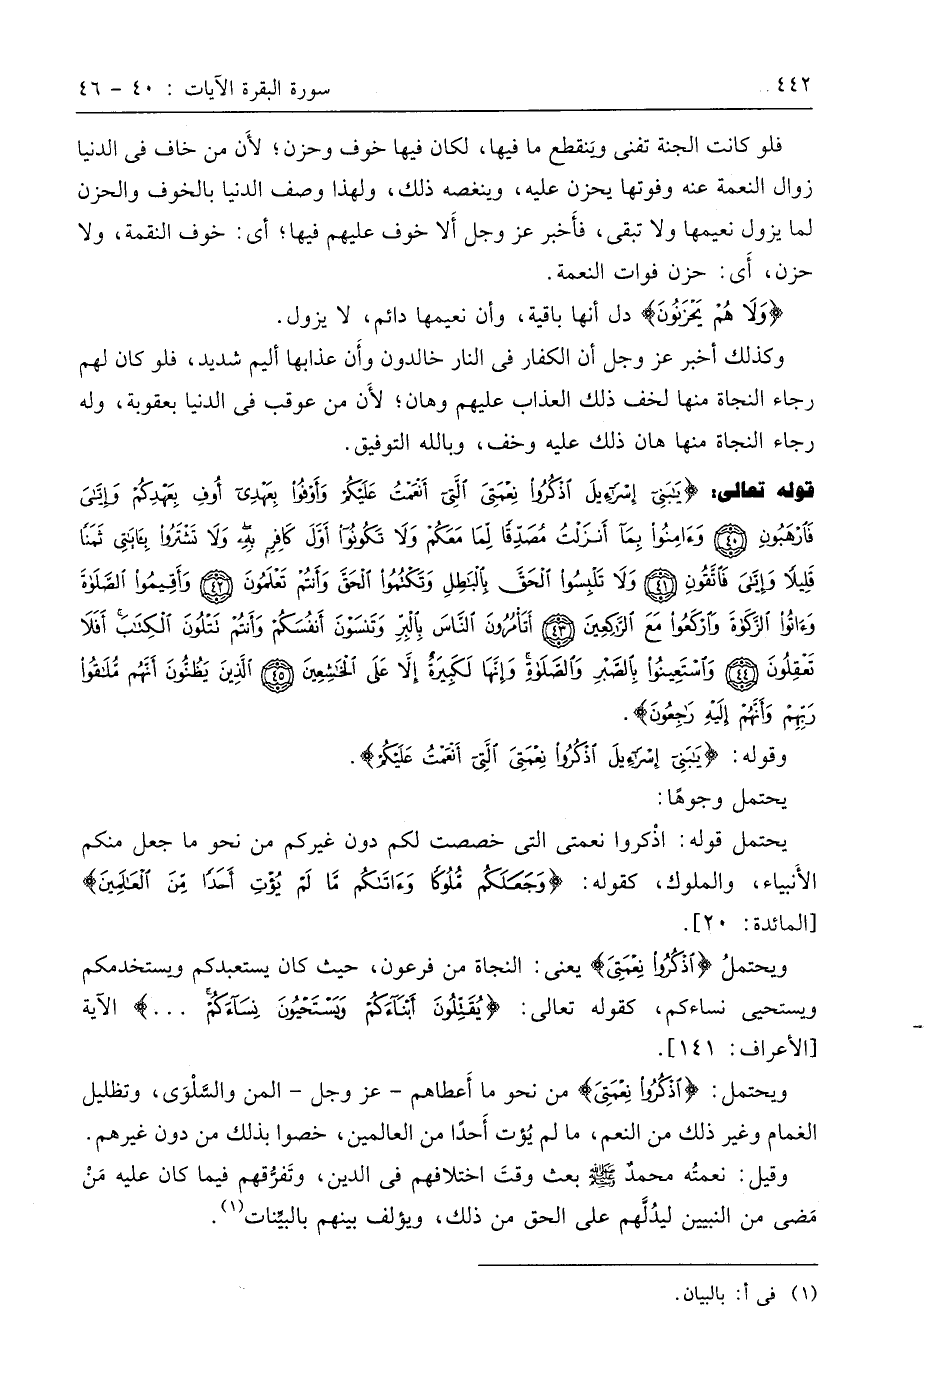 ٤٤٢ سورة البقرة الآيات : ٤٠ - ٤٦
فلو كانت الجنة تفنى ويَنقطع ما فيها، لكان فيها خوف وحزن؛ لأَن من خاف فى الدنيا
زوال النعمة عنه وفوتها يحزن عليه، وينغصه ذلك، ولهذا وصف الدنيا بالخوف والحزن
لما يزول نعيمها ولا تبقى، فأَخبر عز وجل أَلا خوف عليهم فيها؛ أى: خوف النقمة، ولا
حزن، أَى: حزن فوات النعمة.
﴿وَلَا هُمْ يَحْزَنُونَ﴾ دل أنها باقية، وأن نعيمها دائم، لا يزول.
وكذلك أخبر عز وجل أن الكفار فى النار خالدون وأَن عذابها أليم شديد، فلو كان لهم
رجاء النجاة منها لخف ذلك العذاب عليهم وهان؛ لأَن من عوقب فى الدنيا بعقوبة، وله
رجاء النجاة منها هان ذلك عليه وخف، وبالله التوفيق.
قوله تعالى: ﴿يَٰبَنِىٓ إِسْرَٰٓءِيلَ ٱذْكُرُوا۟ نِعْمَتِىَ ٱلَّتِىٓ أَنْعَمْتُ عَلَيْكُمْ وَأَوْفُوا۟ بِعَهْدِىٓ أُوفِ بِعَهْدِكُمْ وَإِيَّٰىَ
فَٱرْهَبُونِ ﴿٤٠﴾ وَءَامِنُوا۟ بِمَآ أَنزَلْتُ مُصَدِّقًا لِّمَا مَعَكُمْ وَلَا تَكُونُوٓا۟ أَوَّلَ كَافِرٍۭ بِهِۦ وَلَا تَشْتَرُوا۟ بِـَٔايَٰتِى ثَمَنًا
قَلِيلًا وَإِيَّٰىَ فَٱتَّقُونِ ﴿٤١﴾ وَلَا تَلْبِسُوا۟ ٱلْحَقَّ بِٱلْبَٰطِلِ وَتَكْتُمُوا۟ ٱلْحَقَّ وَأَنتُمْ تَعْلَمُونَ ﴿٤٢﴾ وَأَقِيمُوا۟ ٱلصَّلَوٰةَ
وَءَاتُوا۟ ٱلزَّكَوٰةَ وَٱرْكَعُوا۟ مَعَ ٱلرَّٰكِعِينَ ﴿٤٣﴾ أَتَأْمُرُونَ ٱلنَّاسَ بِٱلْبِرِّ وَتَنسَوْنَ أَنفُسَكُمْ وَأَنتُمْ تَتْلُونَ ٱلْكِتَٰبَ ۚ أَفَلَا
تَعْقِلُونَ ﴿٤٤﴾ وَٱسْتَعِينُوا۟ بِٱلصَّبْرِ وَٱلصَّلَوٰةِ ۚ وَإِنَّهَا لَكَبِيرَةٌ إِلَّا عَلَى ٱلْخَٰشِعِينَ ﴿٤٥﴾ ٱلَّذِينَ يَظُنُّونَ أَنَّهُم مُّلَٰقُوا۟
رَبِّهِمْ وَأَنَّهُمْ إِلَيْهِ رَٰجِعُونَ﴾.
وقوله: ﴿يَٰبَنِىٓ إِسْرَٰٓءِيلَ ٱذْكُرُوا۟ نِعْمَتِىَ ٱلَّتِىٓ أَنْعَمْتُ عَلَيْكُمْ﴾.
يحتمل وجوهًا:
يحتمل قوله: اذْكروا نعمتى التى خصصت لكم دون غيركم من نحو ما جعل منكم
الأنبياء، والملوك، كقوله: ﴿وَجَعَلَكُم مُّلُوكًا وَءَاتَىٰكُم مَّا لَمْ يُؤْتِ أَحَدًا مِّنَ ٱلْعَٰلَمِينَ﴾
[المائدة: ٢٠].
ويحتملُ ﴿ٱذْكُرُوا۟ نِعْمَتِىَ﴾ يعنى: النجاة من فرعون، حيث كان يستعبدكم ويستخدمكم
ويستحيى نساءكم، كقوله تعالى: ﴿يُقَتِّلُونَ أَبْنَآءَكُمْ وَيَسْتَحْيُونَ نِسَآءَكُمْ ۚ ...﴾ الآية
[الأعراف: ١٤١].
ويحتمل: ﴿ٱذْكُرُوا۟ نِعْمَتِىَ﴾ من نحو ما أَعطاهم - عز وجل - المن والسَّلْوَى، وتظليل
الغمام وغير ذلك من النعم، ما لم يُؤت أَحدًا من العالمين، خصوا بذلك من دون غيرهم.
وقيل: نعمتُه محمدٌ ﷺ بعث وقتَ اختلافهم فى الدين، وتَفرُّقهم فيما كان عليه مَنْ
مَضى من النبيين ليدُلَّهم على الحق من ذلك، ويؤلف بينهم بالبيِّنات(١).
(١) فى أ: بالبيان.